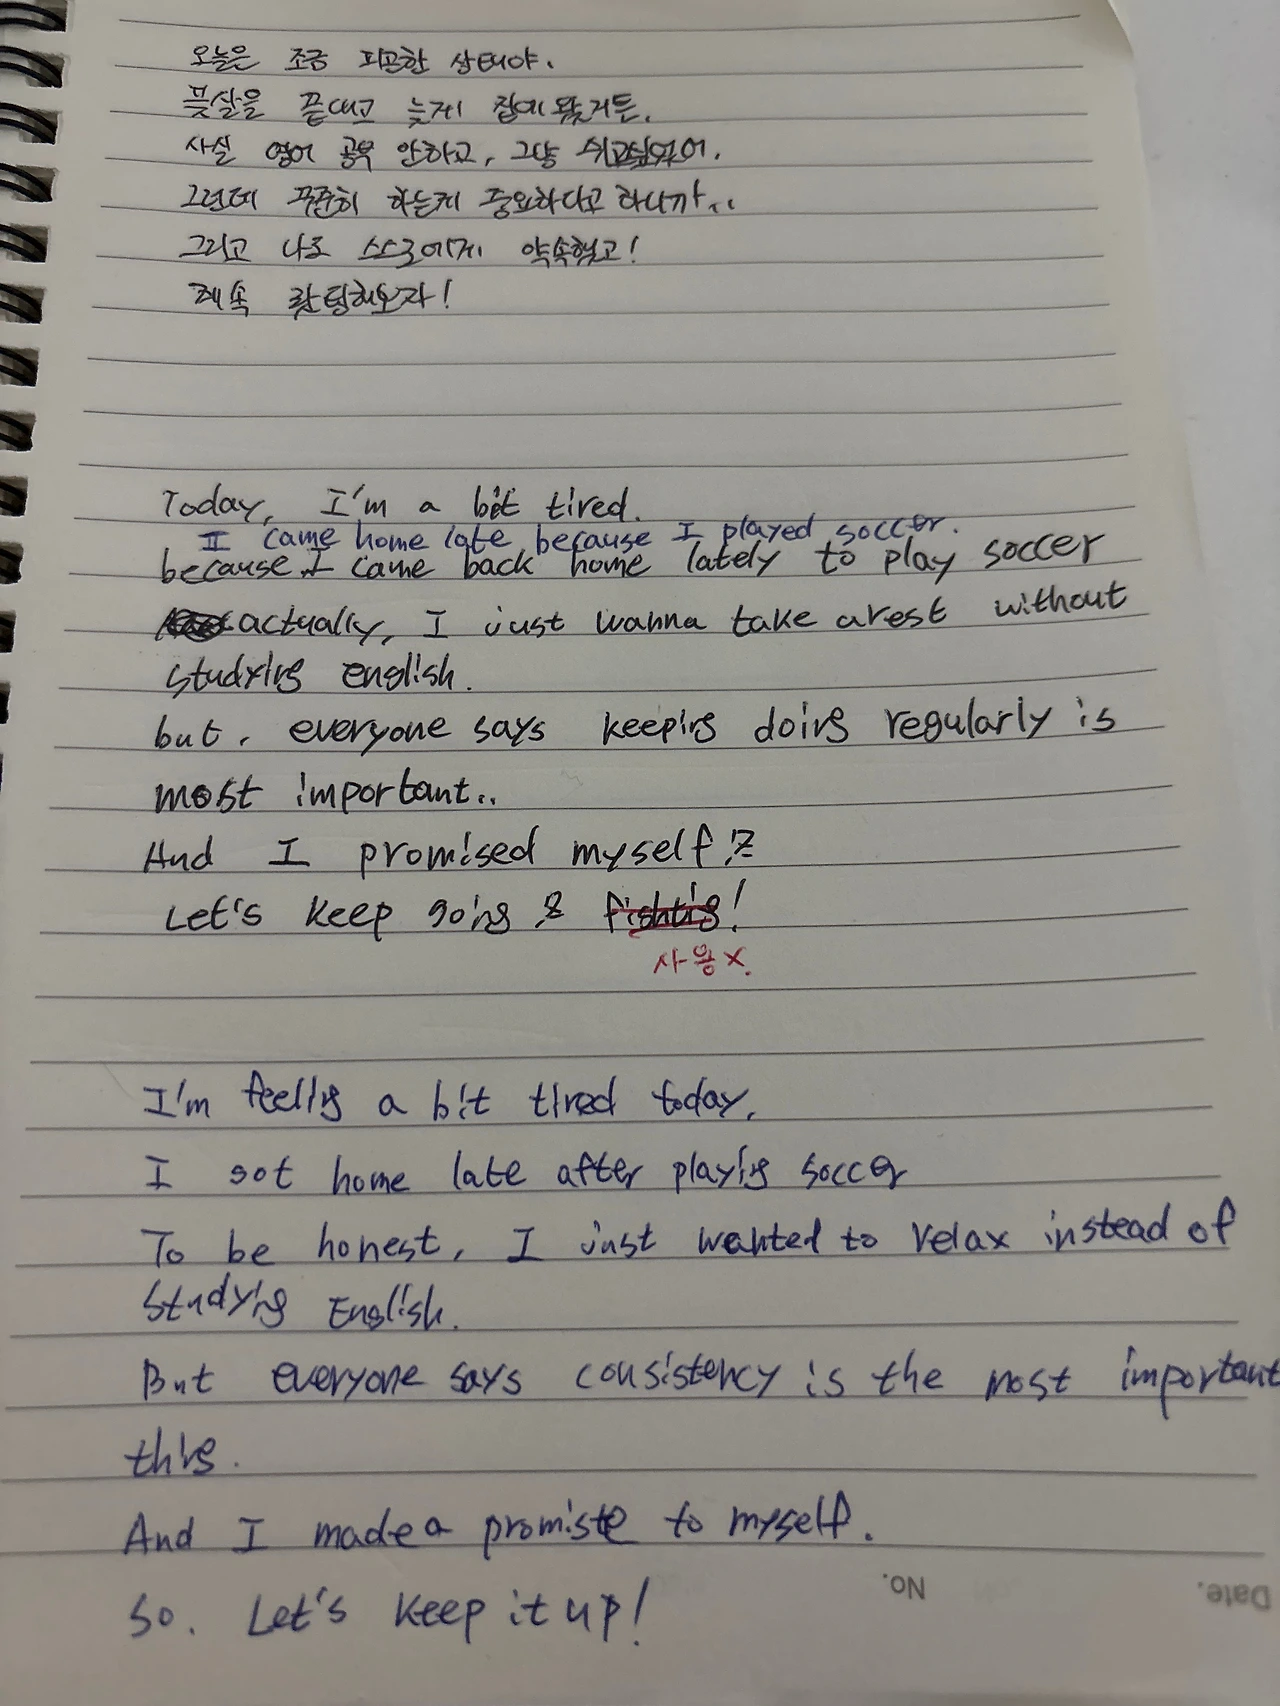 오늘은 조금 피곤한 상태야.
풋살을 끝내고 늦게 집에 왔거든.
사실 영어 공부 안하고, 그냥 쉬고싶었어.
그런데 꾸준히 하는게 중요하다고 하니까..
그리고 나로 스스로에게 약속했고!
계속 해보자!
Today, I'm a bit tired.
I came home late because I played soccer.
because I came back home lately to play soccer
actually, I just wanna take a rest without
studying english.
but, everyone says keeping doing regularly is
most important..
And I promised myself.
Let's keep going & fighting!
사용 X.
I'm feeling a bit tired today.
I got home late after playing soccer
To be honest, I just wanted to relax instead of
studying English.
But everyone says consistency is the most important
thing.
And I made a promise to myself.
So. Let's keep it up!
No.
Date.